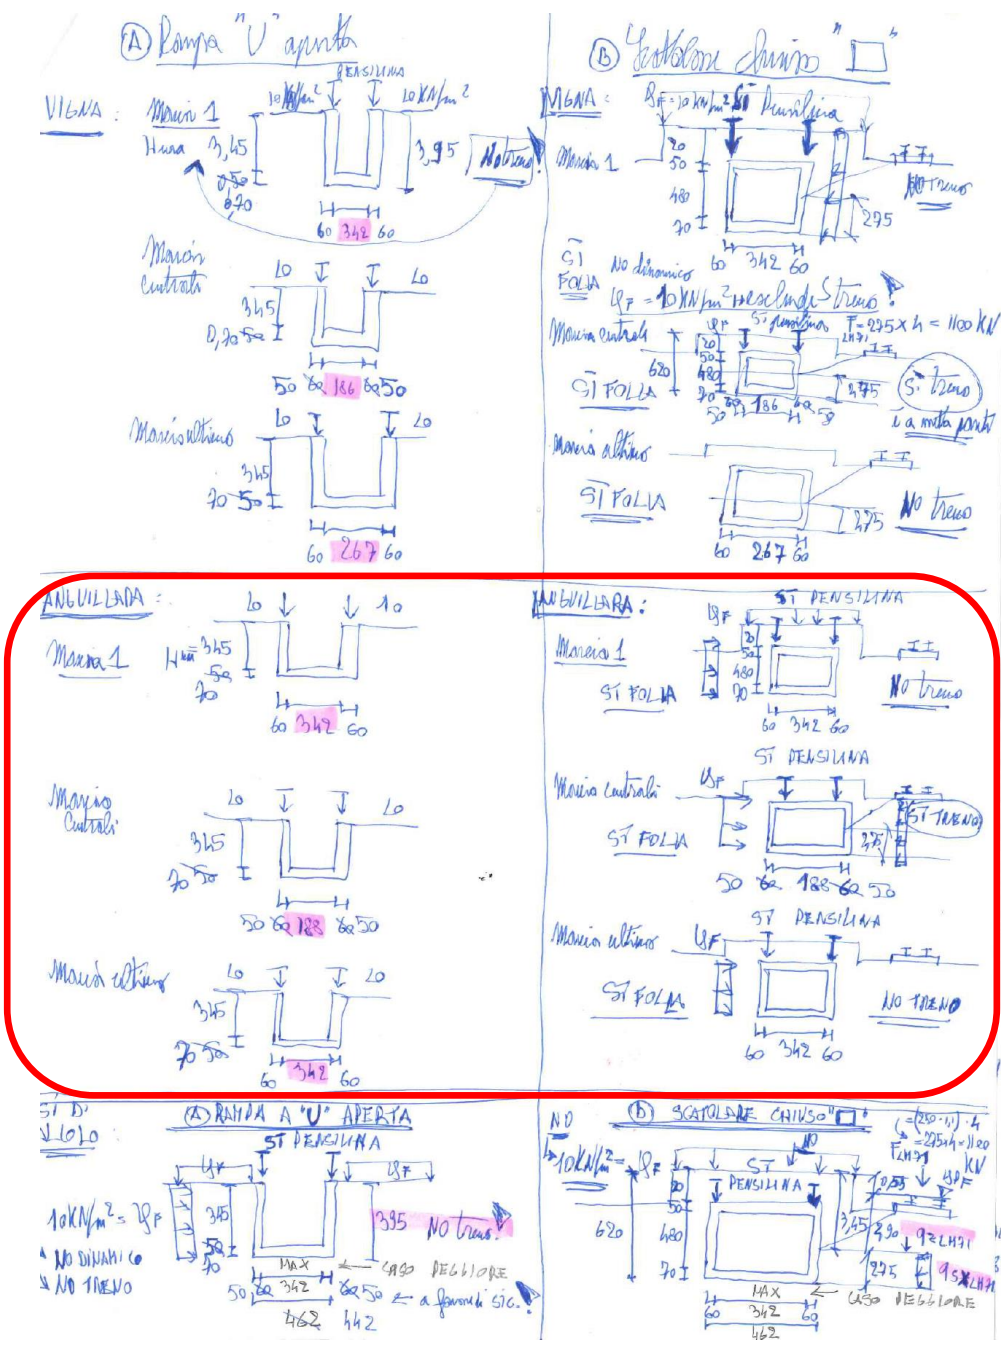 A Rampa "U" aperta
PENSILINA
VIGNA: Marcia 1
10 KN/m²
10 KN/m²
Hma 3,45
3,95
No treno!
0,50
0,70
60 342 60
Marcia centrali
10
10
345
0,70 50
50 60 186 60 50
Marcia ultimo
10
10
345
70 50
60 267 60
B Scatolare chiuso "□"
VIGNA:
qF = 10 KN/m² SI Pensilina
Marcia 1
20
50
480
70
No treno
275
60 342 60
SI FOLLA
No dinamico
qF = 10 KN/m² → esclude S treno!
Marcia centrali
qF
SI pensilina
F = 275 x 4 = 1100 KN
LM71
620
20
50
480
70
SI FOLLA
275
Si treno
è a metà parete
50 60 186 60 50
Marcia ultimo
SI FOLLA
275
No treno
60 267 60
ANGUILLARA:
10
10
Marcia 1
345
50
70
60 342 60
Marcia Centrali
10
10
345
70 50
50 60 188 60 50
Marcia ultimo
10
10
345
70 50
60 342 60
ANGUILLARA:
SI PENSILINA
qF
Marcia 1
20
50
480
70
SI FOLLA
No treno
60 342 60
SI PENSILINA
Marcia centrali
qF
SI TRENO
SI FOLLA
275
50 60 188 60 50
SI PENSILINA
Marcia ultimo
qF
SI FOLLA
NO TRENO
60 342 60
A RAMPA A "U" APERTA
SI PENSILINA
qF
qF
10 KN/m² = qF
345
50
70
395
NO treno!
NO DINAMICO
NO TRENO
MAX
CASO PEGGIORE
50 60 342 60 50 ← a favore di sic.!
462 442
B SCATOLARE CHIUSO "□"
NO
10 KN/m² = qF
NO
SI
PENSILINA
= (250 · 1,1) · 4
= 275 x 4 = 1100 KN
FLM71
qF
20
50
480
70
620
0,55
3,45
290
qzLM71
275
qsxLM71
MAX
CASO PEGGIORE
60 342 60
462